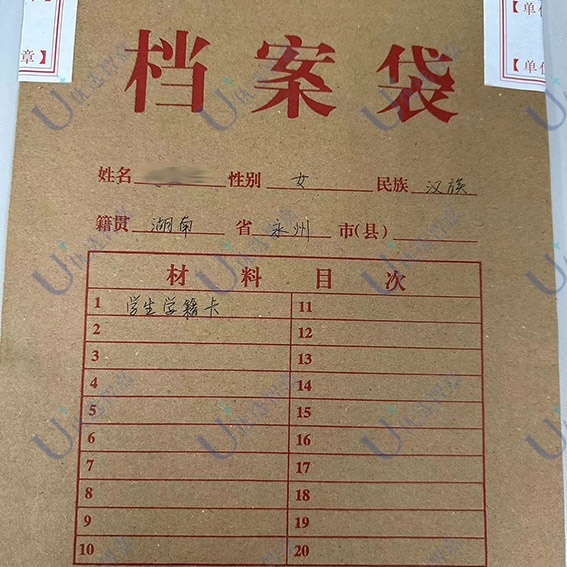 【单位
章】
【单位
档案袋
姓名 性别 女 民族 汉族
籍贯 湖南 省 永州 市(县)
材料目次
1 学生学籍卡 11
2 12
3 13
4 14
5 15
6 16
7 17
8 18
9 19
10 20
U优达智慧